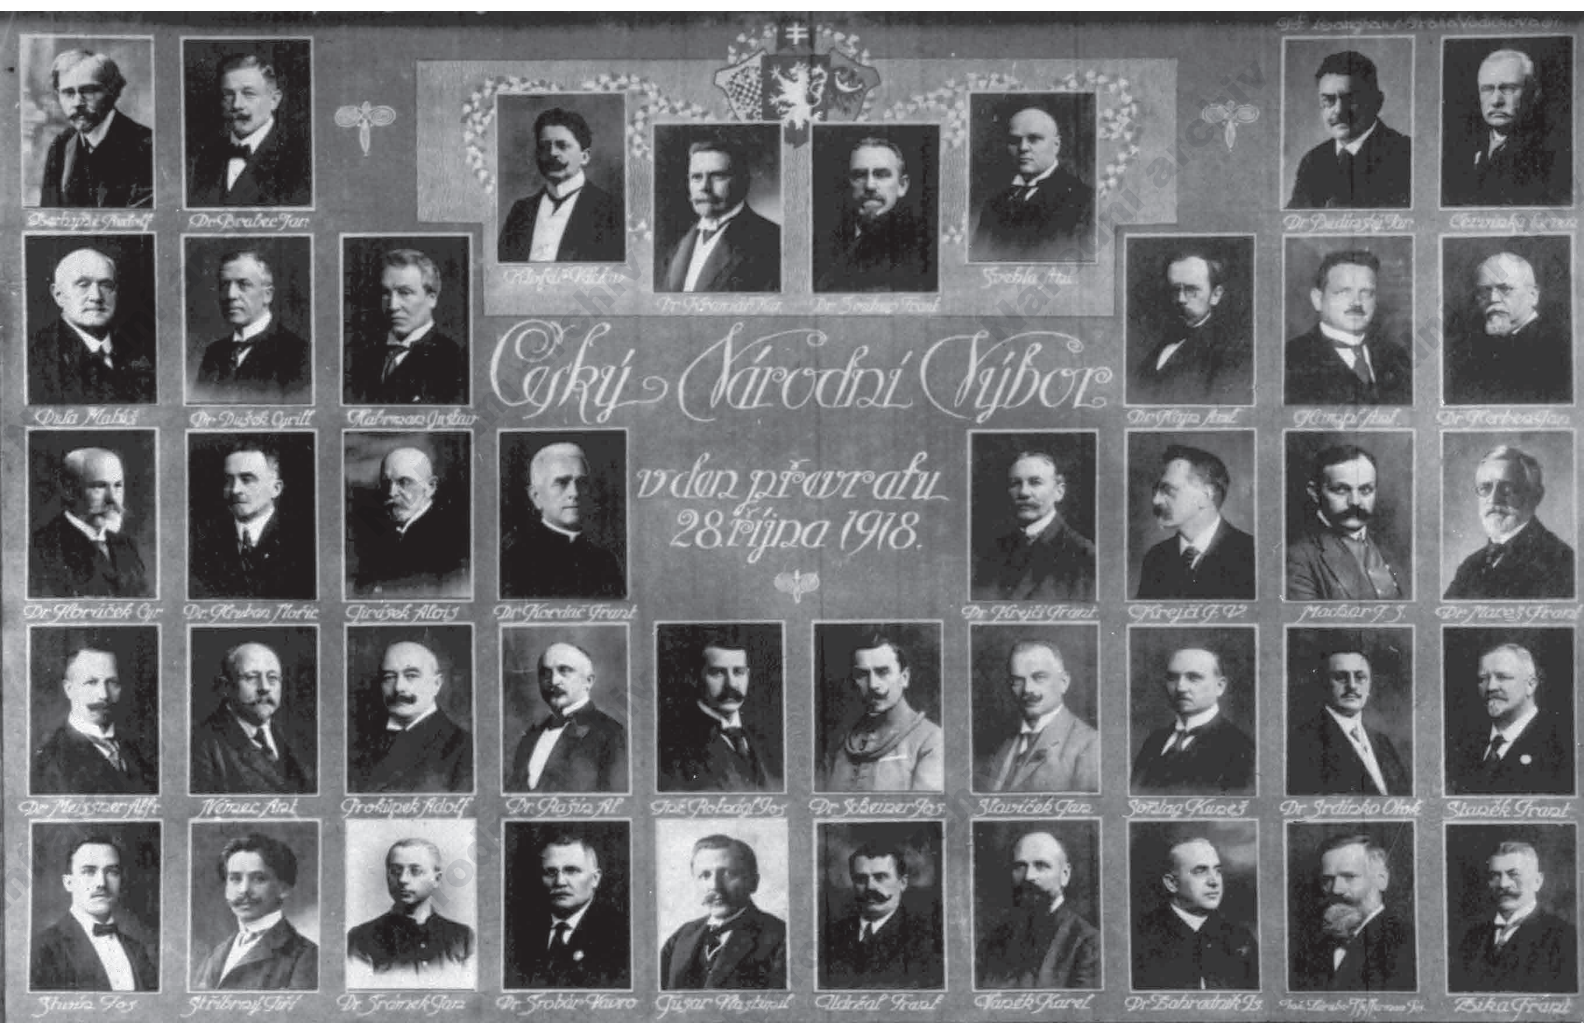 Bechyně Rudolf
Dr Brabec Jan
Klofáč Václav
Dr Kramář Kar
Dr Soukup Frant
Švehla Ant
Dr Dedinský
Červinka
Diła Matúš
Dr Dušek Cyrill
Habrman Gustav
Český Národní Výbor
Dr Hajn Ant
Hampl Ant
Dr Herben Jan
v den převratu
28. října 1918.
Dr Horáček Cyr
Dr. Hruban Mořic
Jirásek Alois
Dr Kordač Frant
Dr Krejčí Frant
Krejčí F. V
Machar J. S
Dr Mareš Frant
Dr Meissner Alfr
Němec Ant
Prokůpek Adolf
Dr. Rašín Al
Inž Rotnágl Jos
Dr Scheiner Jos
Slavíček Jan
Sonntag Kuneš
Dr. Srdínko Otok
Staněk Frant
Stivín Jos
Stříbrný Jiří
Dr Šrámek Jan
Dr Šrobár Vavro
Tusar Vlastimil
Udržal Frant
Vaněk Karel
Dr Zahradník Is.
Žika Frant